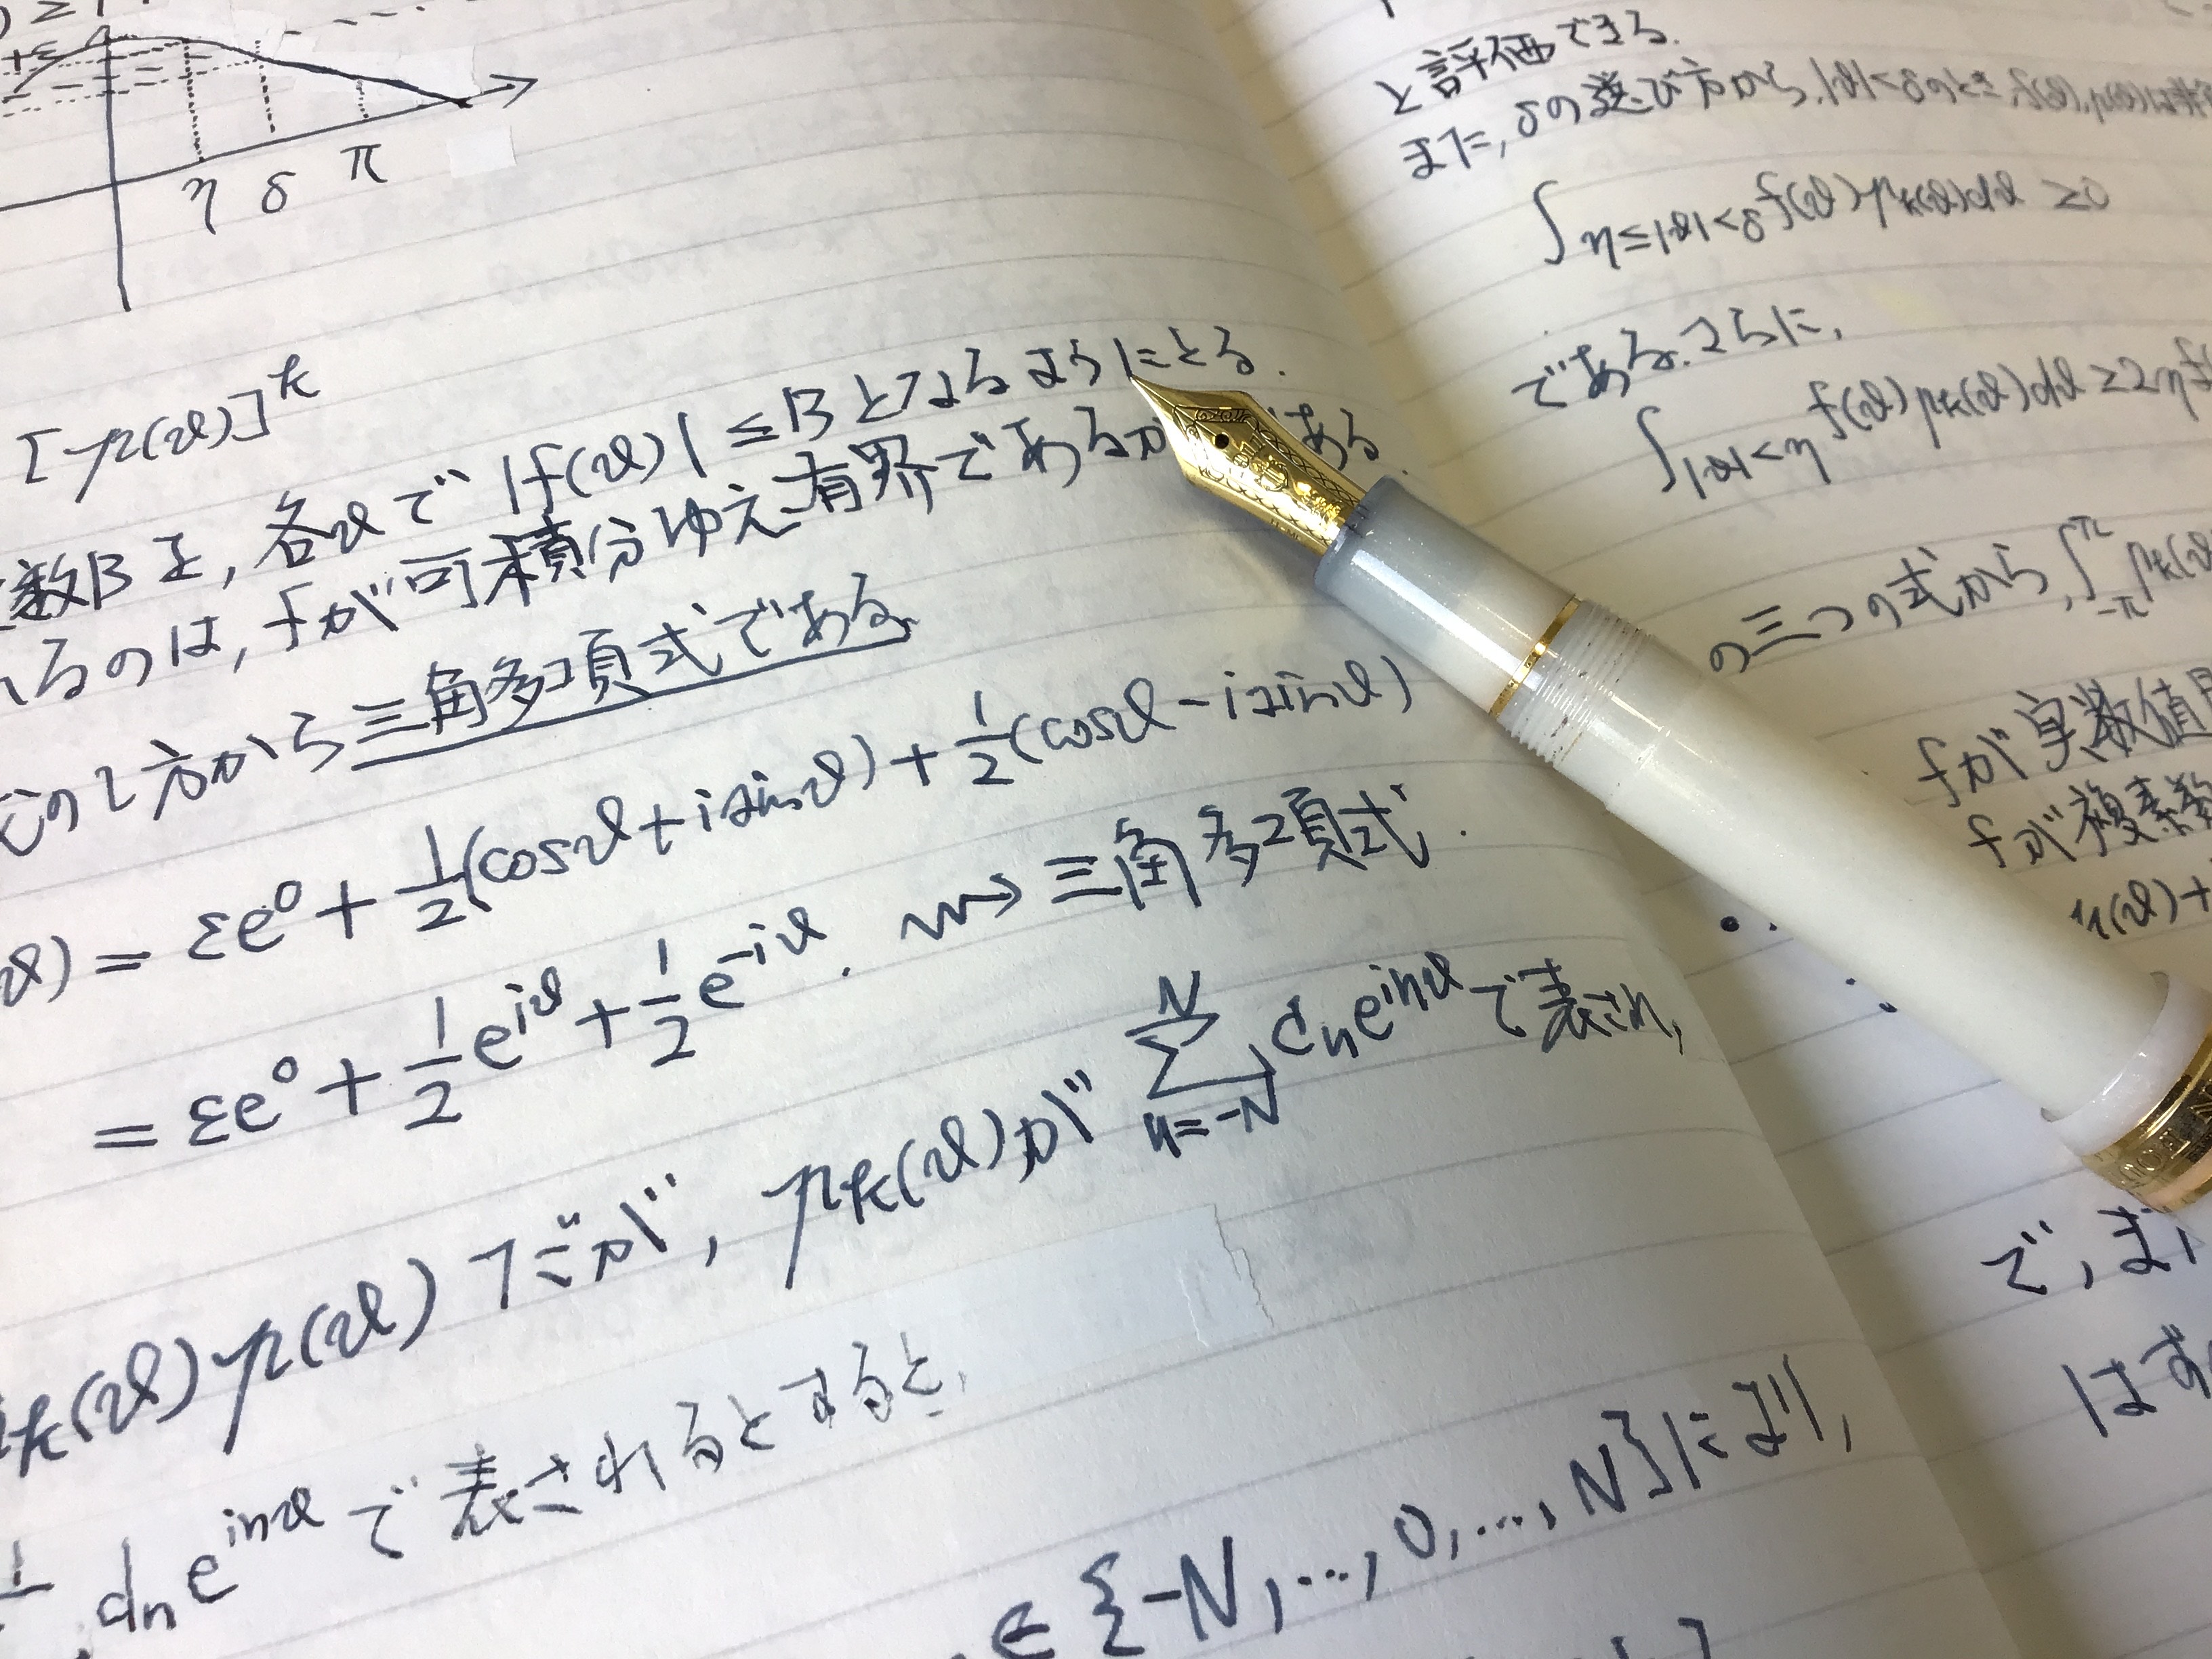 +ε
η δ π
[p(ϑ)]^k
数Bを, 各ϑで |f(ϑ)| ≤ B となるようにとる.
るのは, fが可積分ゆえ有界であるか ある.
方から三角多項式である.
ϑ) = εe^0 + 1/2(cosϑ + i sinϑ) + 1/2(cosϑ - i sinϑ)
= εe^0 + 1/2 e^{iϑ} + 1/2 e^{-iϑ}. ⇝ 三角多項式.
k(ϑ)p(ϑ) だが, p_k(ϑ)が ∑_{n=-N}^{N} c_n e^{inϑ} で表され,
d_n e^{inϑ} で表されるとすると,
∈ {-N, ..., 0, ..., N}により,
と評価できる.
また, δの選び方から, |ϑ|<δのとき,
∫_{η≤|ϑ|<δ} f(ϑ) p_k(ϑ) dϑ ≥ 0
である. さらに,
∫_{|ϑ|<η} f(ϑ) p_k(ϑ) dϑ ≥ 2η
の三つの式から, ∫_{-π}^{π} p_k(ϑ
fが実数値
fが複素数
u(ϑ)+
で, ま
はず